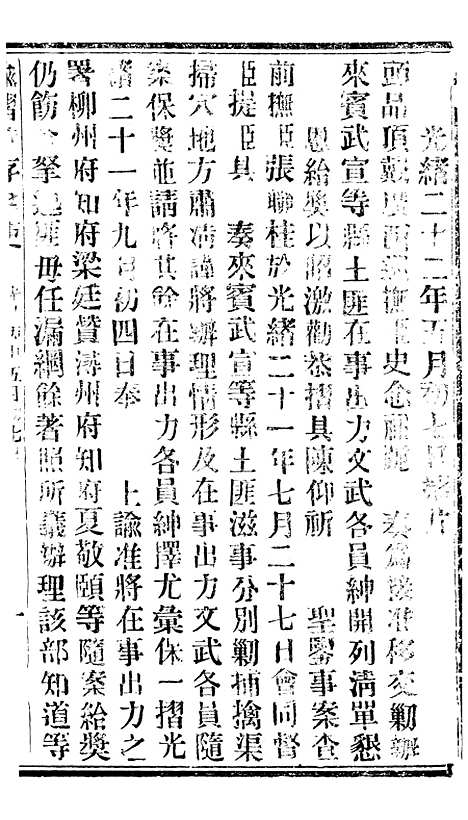 光緒二十二年五月初七日諮片
頭品頂戴廣西巡撫臣史念祖跪 奏為接准移交剿辦
來賓武宣等縣土匪在事出力文武各員紳開列清單懇
恩給獎以昭激勸恭摺具陳仰祈 聖鑒事案查
前撫臣張聯桂於光緒二十一年七月二十七日會同督
臣提臣具 奏來賓武宣等縣土匪滋事分別剿捕擒渠
掃穴地方肅清謹將辦理情形及在事出力文武各員隨
案保獎並請將其餘在事出力各員紳擇尤彙保一摺光
緒二十一年九月初四日奉 上諭准將在事出力之
署柳州府知府梁廷贊潯州府知府夏敬頤等隨案給獎
仍飭令拏逸匪毋任漏網餘著照所議辦理該部知道等